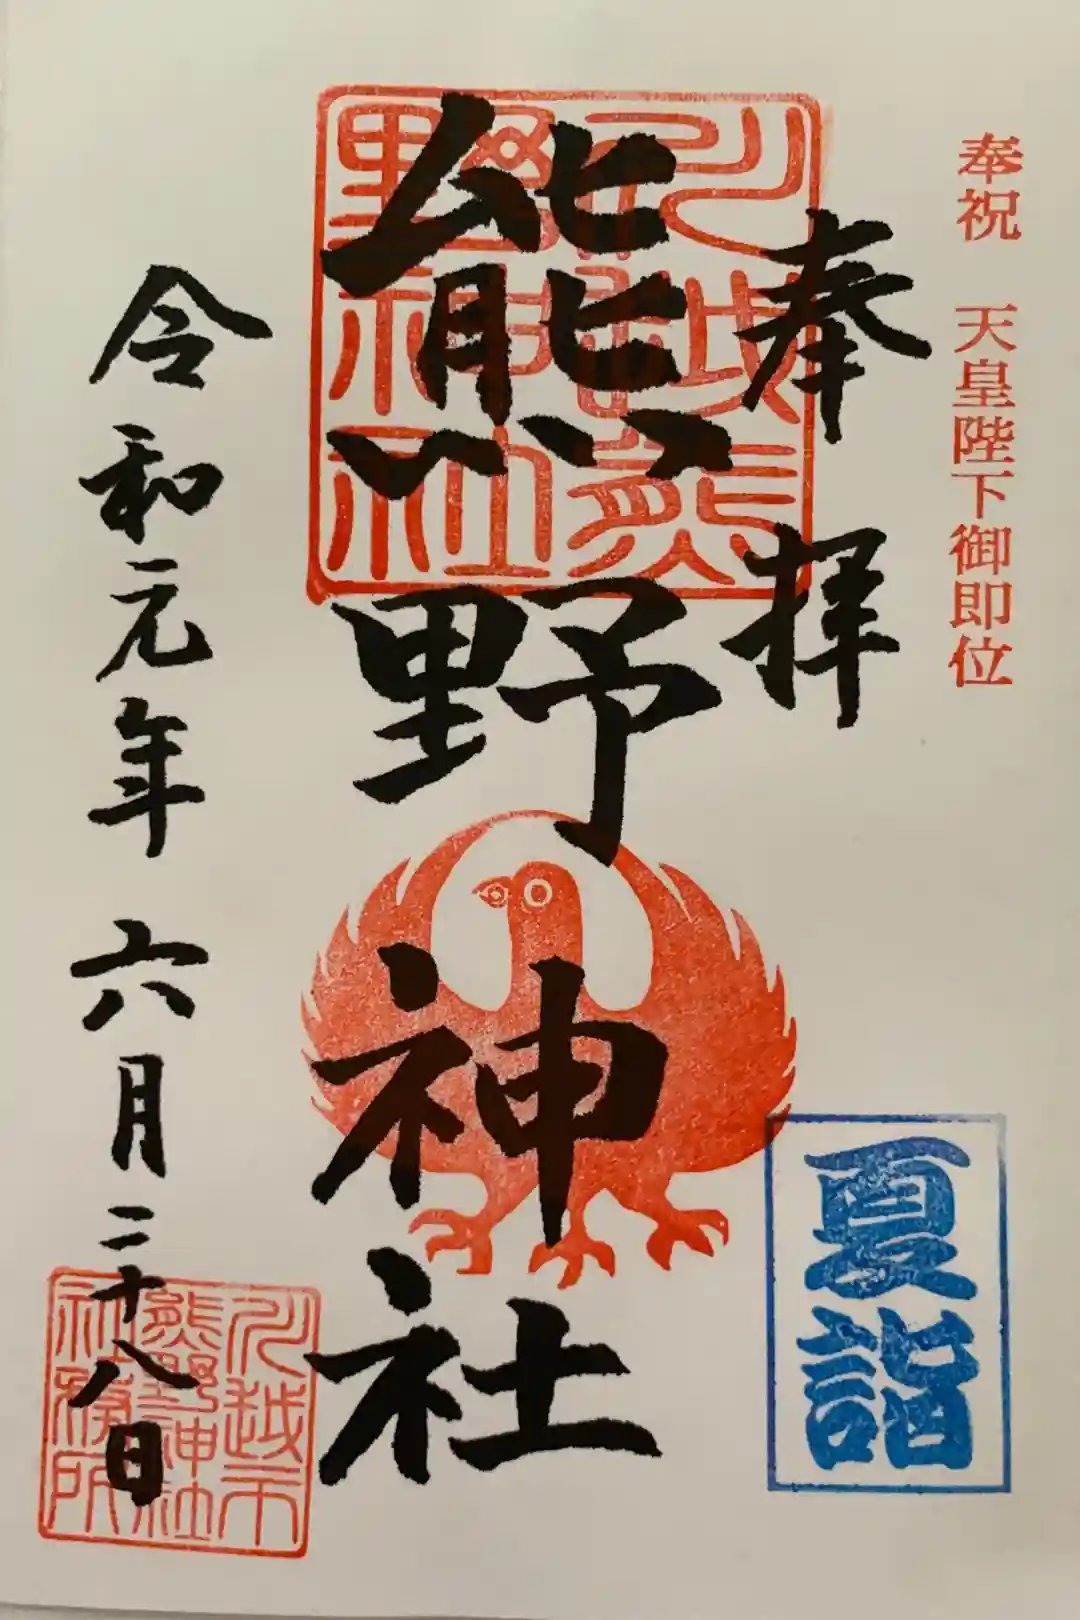 奉祝 天皇陛下御即位
奉拝
川越熊野神社
熊野神社
夏詣
令和元年六月二十八日
川越市熊野神社社務所